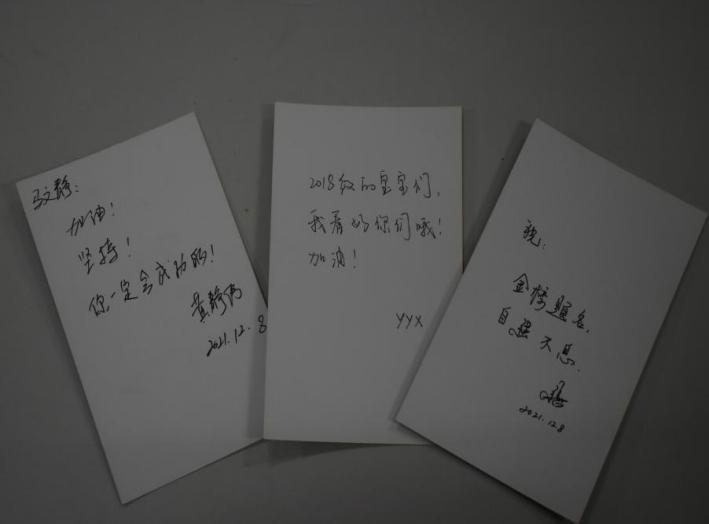 马文静：
加油！
坚持！
你一定会成功的！
黄静
2021.12.8
2018级的宝宝们，
我看好你们哦！
加油！
YYX
金榜题名，
自强不息.
2021.12.8